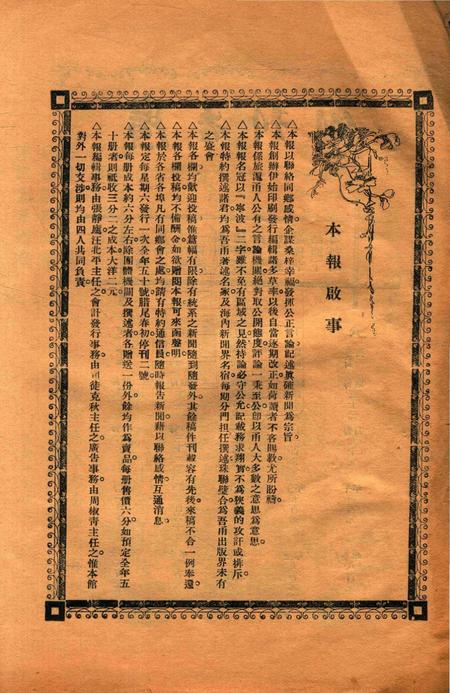 本報啟事
△本報以聯絡同鄉感情企謀桑梓幸福發揮公正言論記述眞確新聞爲宗旨
△本報創辦伊始印刷發行編輯諸多草率以後自當逐期改正如荷讀者不吝賜敎尤所盼禱
△本報係旅滬甬人公有之言論機關絕對取公開態度評論一秉至公卽以甬人大多數之意思爲意思
△本報報名冠以『寧波』二字雖不免有區域之見然持論必守公允記載務求翔實不爲狹義的攻訐或排斥
△本報特約撰述諸君均爲吾甬著述名家及海內新聞界名宿每期分門担任撰述珠聯璧合爲吾甬出版界未有
之盛會
△本報各欄均歡迎投稿惟篇幅有限除有統系之新聞隨到隨發外其餘稿件刊載容有先後來稿不合一例奉還
△本報各欄投稿均不備酬金如欲贈閱本報可來函聲明
△本報於各省各埠凡有同鄉會之處均請有特約通信員隨時報告新聞藉以聯絡感情互通消息
△本報定每星期六發行一次全年五十號臘尾春初停刊二號
△本報每册成本約六分左右除團體機關及撰述者各贈送一份外餘均作爲賣品每册售價六分如預定全年五
十册者則祇收三分二之成本大洋二元
△本報編輯事務由張靜廬汪北平主任之會計發行事務由司徒克秋主任之廣告事務由周椒靑主任之惟本館
對外一切交涉則均由四人共同負責